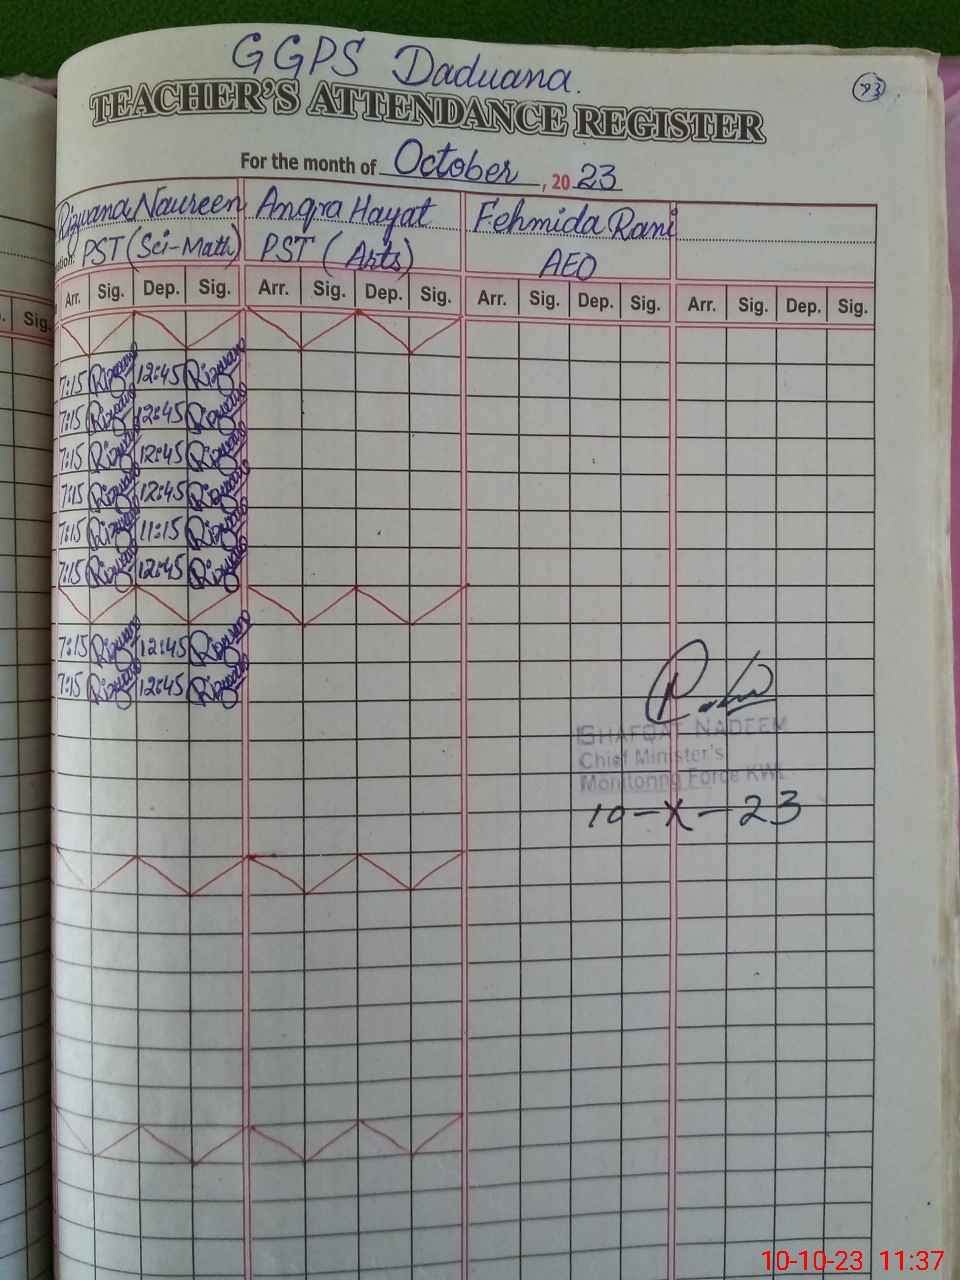 GGPS Daduana.
93
TEACHER'S ATTENDANCE REGISTER
For the month of October, 20 23
Rizwana Naureen Anqra Hayat Fehmida Rani
PST (Sci-Math) PST (Arts) AEO
Sig. Arr. Sig. Dep. Sig. Arr. Sig. Dep. Sig. Arr. Sig. Dep. Sig. Arr. Sig. Dep. Sig.
7:15 Rizwana 12:45 Rizwana
7:15 Rizwana 12:45 Rizwana
7:15 Rizwana 12:45 Rizwana
7:15 Rizwana 12:45 Rizwana
7:15 Rizwana 11:15 Rizwana
7:15 Rizwana 12:45 Rizwana
7:15 Rizwana 12:45 Rizwana
7:15 Rizwana 12:45 Rizwana
SHAFQAT NADEEM
Chief Minister's
Monitoring Force KWL
10-X-23
10-10-23 11:37